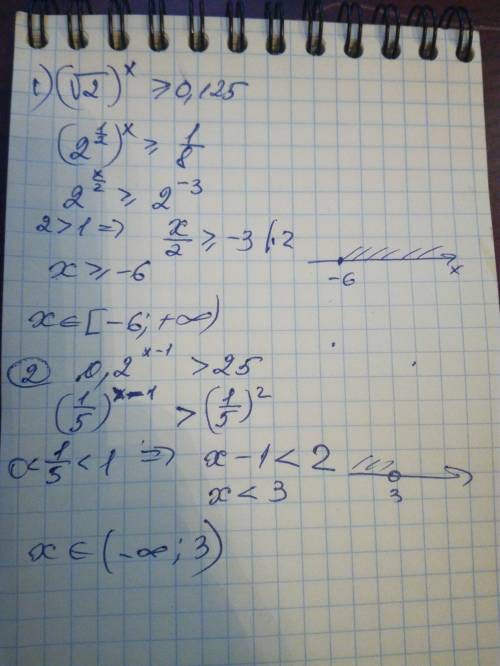 1) (√2)^x ≥ 0,125
(2^(1/2))^x ≥ 1/8
2^(x/2) ≥ 2^(-3)
2 > 1 => x/2 ≥ -3 |·2
x ≥ -6
-6 x
x ∈ [-6; +∞)
2 0,2^(x-1) > 25
(1/5)^(x-1) > (1/5)^2
0 < 1/5 < 1 => x - 1 < 2
x < 3
3
x ∈ (-∞; 3)